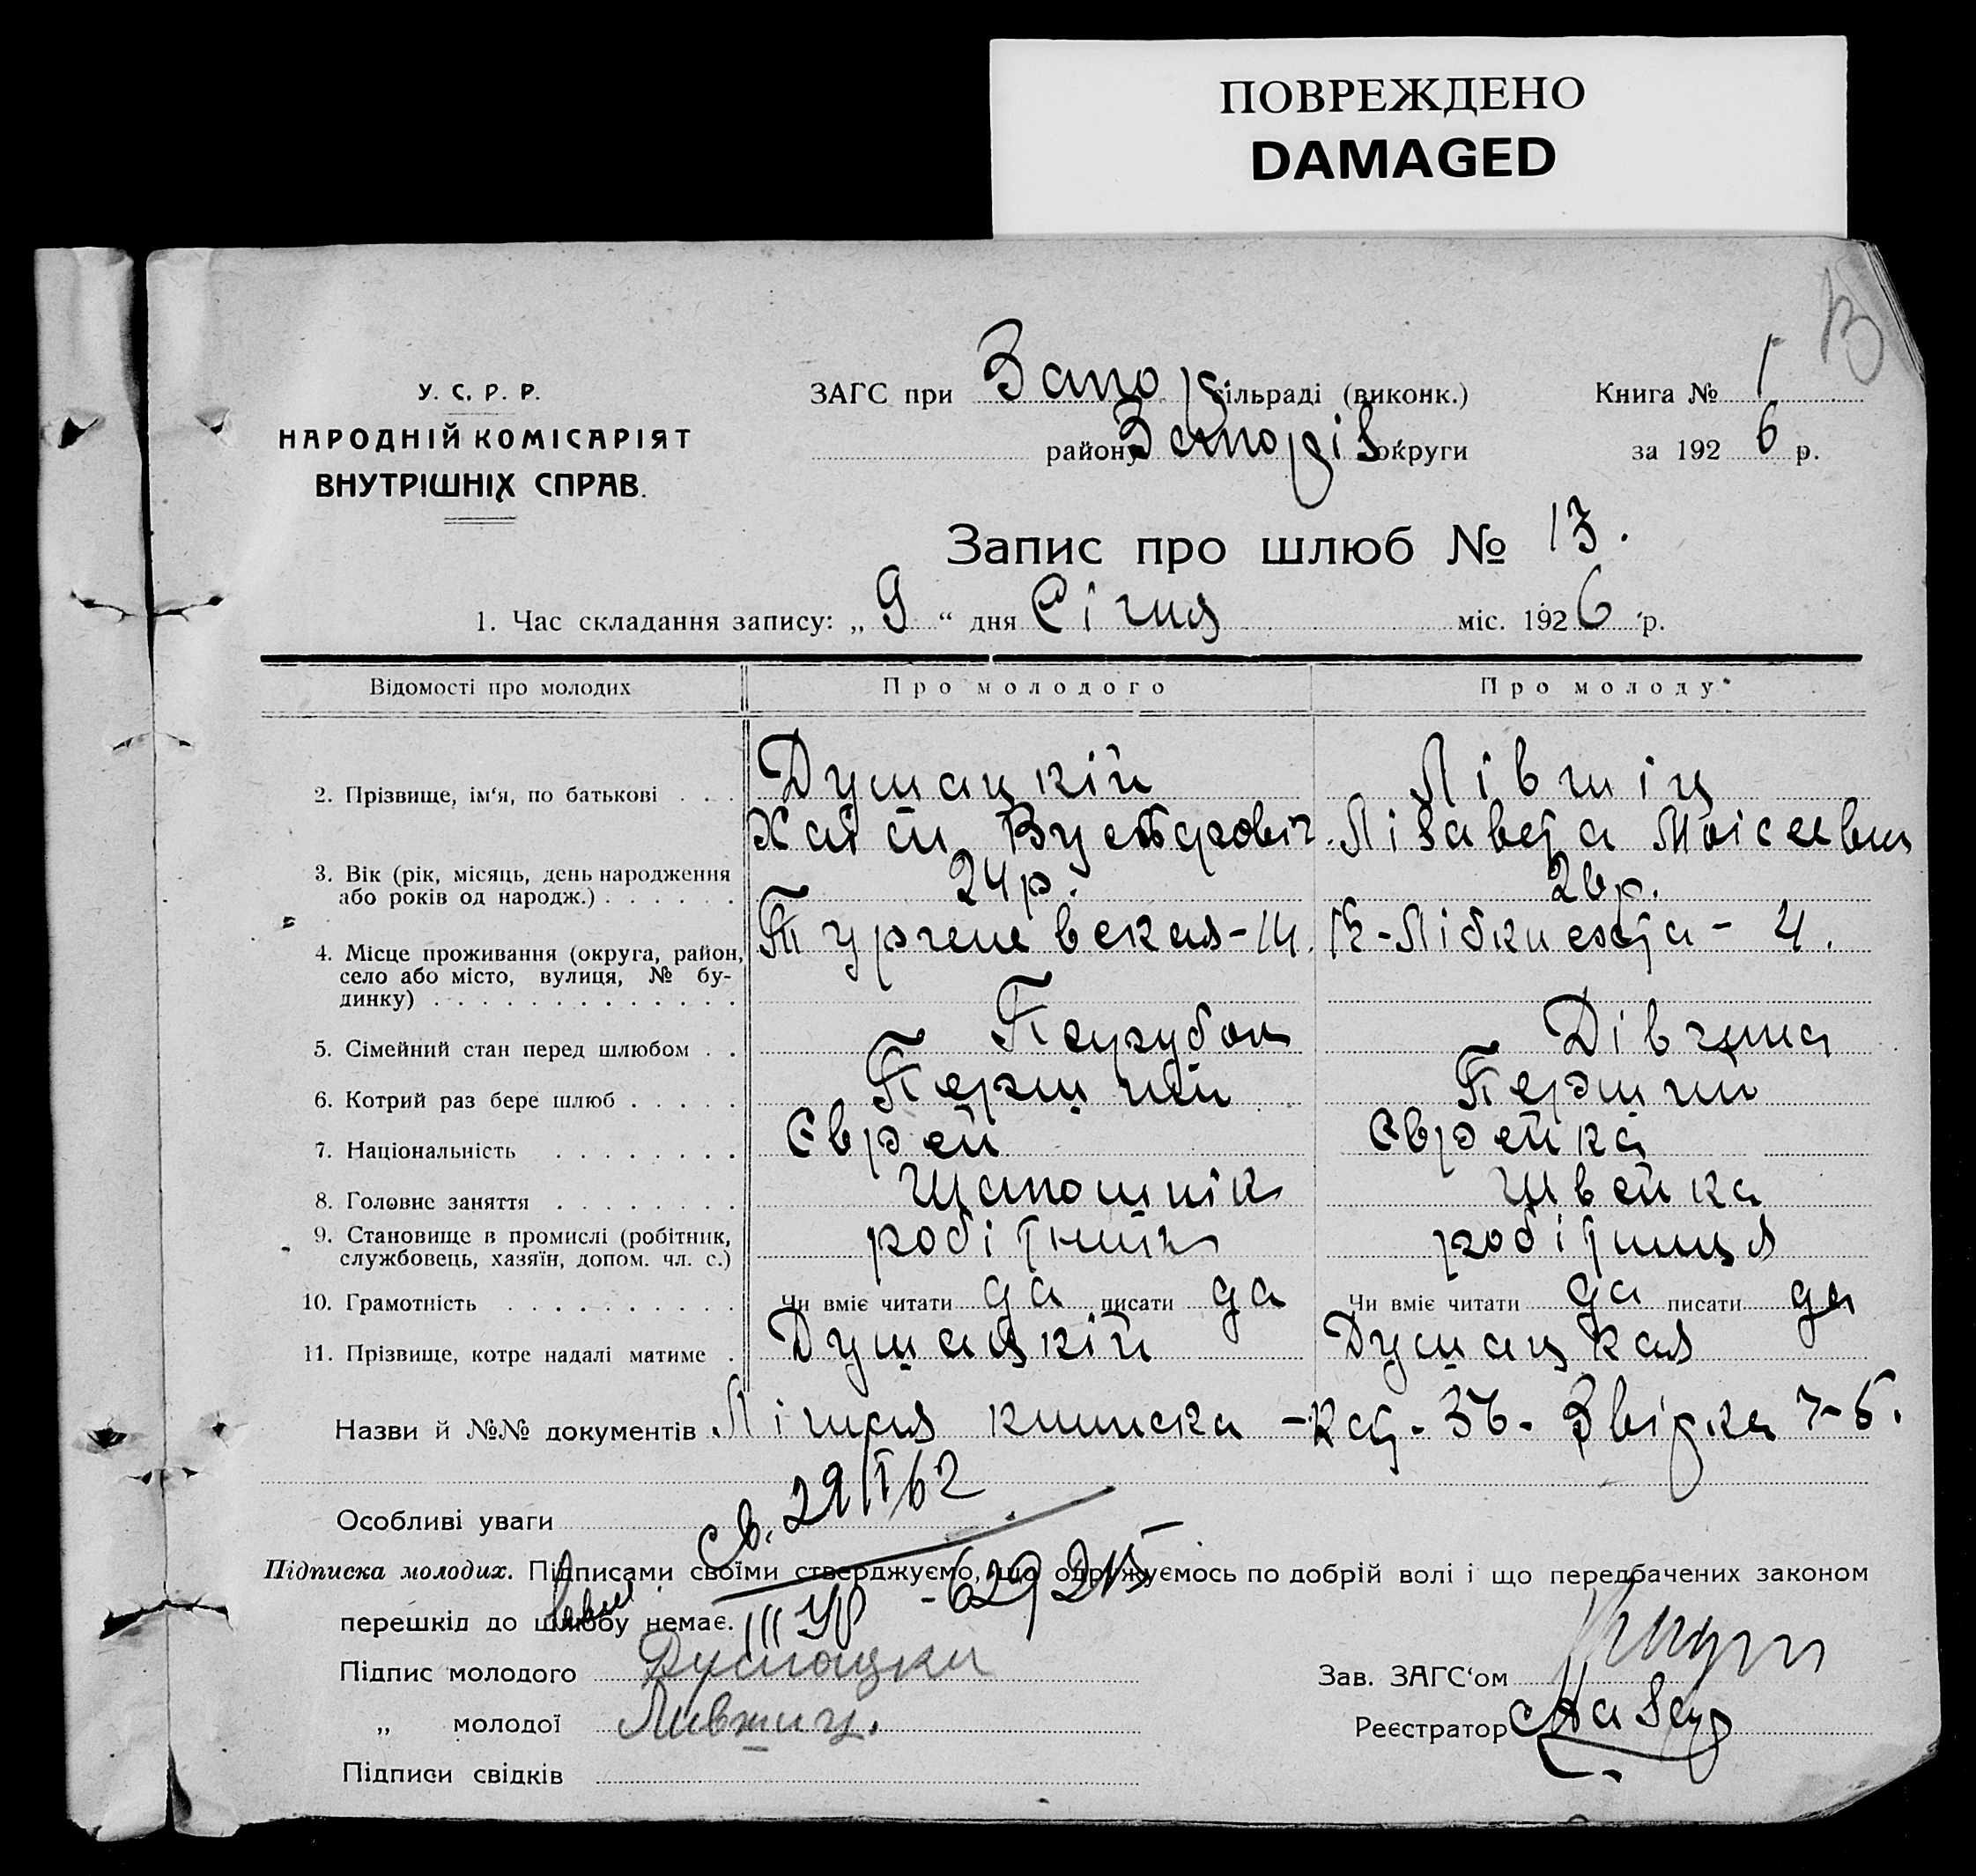 ПОВРЕЖДЕНО
DAMAGED
У. С. Р. Р.
НАРОДНІЙ КОМІСАРІЯТ
ВНУТРІШНІХ СПРАВ.
ЗАГС при Запор сільраді (виконк.)
району Запоріз округи
Книга № 1
за 1926 р.
Запис про шлюб № 13.
1. Час складання запису: „ 9 “ дня Січня міс. 1926 р.
Відомості про молодих Про молодого Про молоду
2. Прізвище, ім‘я, по батькові . . . Душацкій Лівшіц
Хаїм Лізавета Моісеевна
3. Вік (рік, місяць, день народження
або років од народж.) . . . . . . 24 р. 26 р.
4. Місце проживання (округа, район, Тургеневская-14. К-Лібкнехта-4.
село або місто, вулиця, № бу-
динку) . . . . . . . . . . . . .
5. Сімейний стан перед шлюбом . . Парубок Дівчина
6. Котрий раз бере шлюб . . . . . Перший Перший
7. Національність . . . . . . . . Єврей Єврейка
8. Головне заняття . . . . . . . . Шапошнік Швейка
9. Становище в промислі (робітник,
службовець, хазяїн, допом. чл. с.) робітник робітниця
10. Грамотність . . . . . . . . . . Чи вміє читати да писати да Чи вміє читати да писати да
11. Прізвище, котре надалі матиме . Душацкій Душацкая
Назви й №№ документів Лічная книжка -
Особливі уваги св. 29/I/62
Підписка молодих. Підписами своїми стверджуємо, що одружуємось по добрій волі і що передбачених законом
перешкід до шлюбу немає.
III УР - 629215
Підпис молодого Душацки
„ молодої Лившиц.
Підписи свідків
Зав. ЗАГС‘ом
Реєстратор